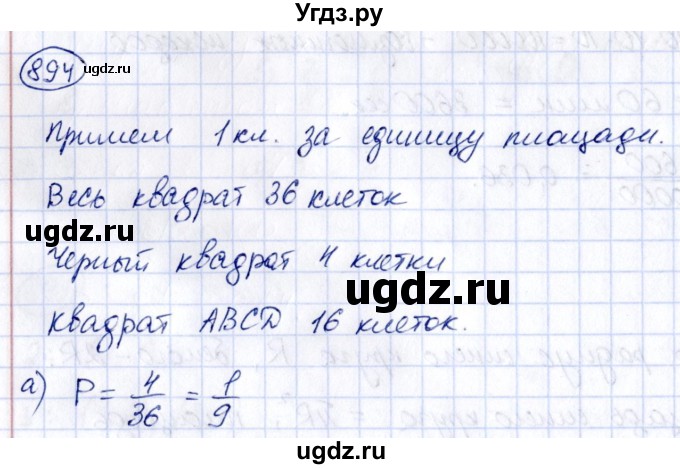 Угдз.ру
894 ugdz.ru
ugdz.ru
Примем 1 кл. за единицу площади.
Весь квадрат 36 клеток
ugdz.ru
Черный квадрат 4 клетки
ugdz.ru
квадрат ABCD 16 клеток.
а) P = 4/36 = 1/9
ugdz.ru
ugdz.ru
Угдз.ру